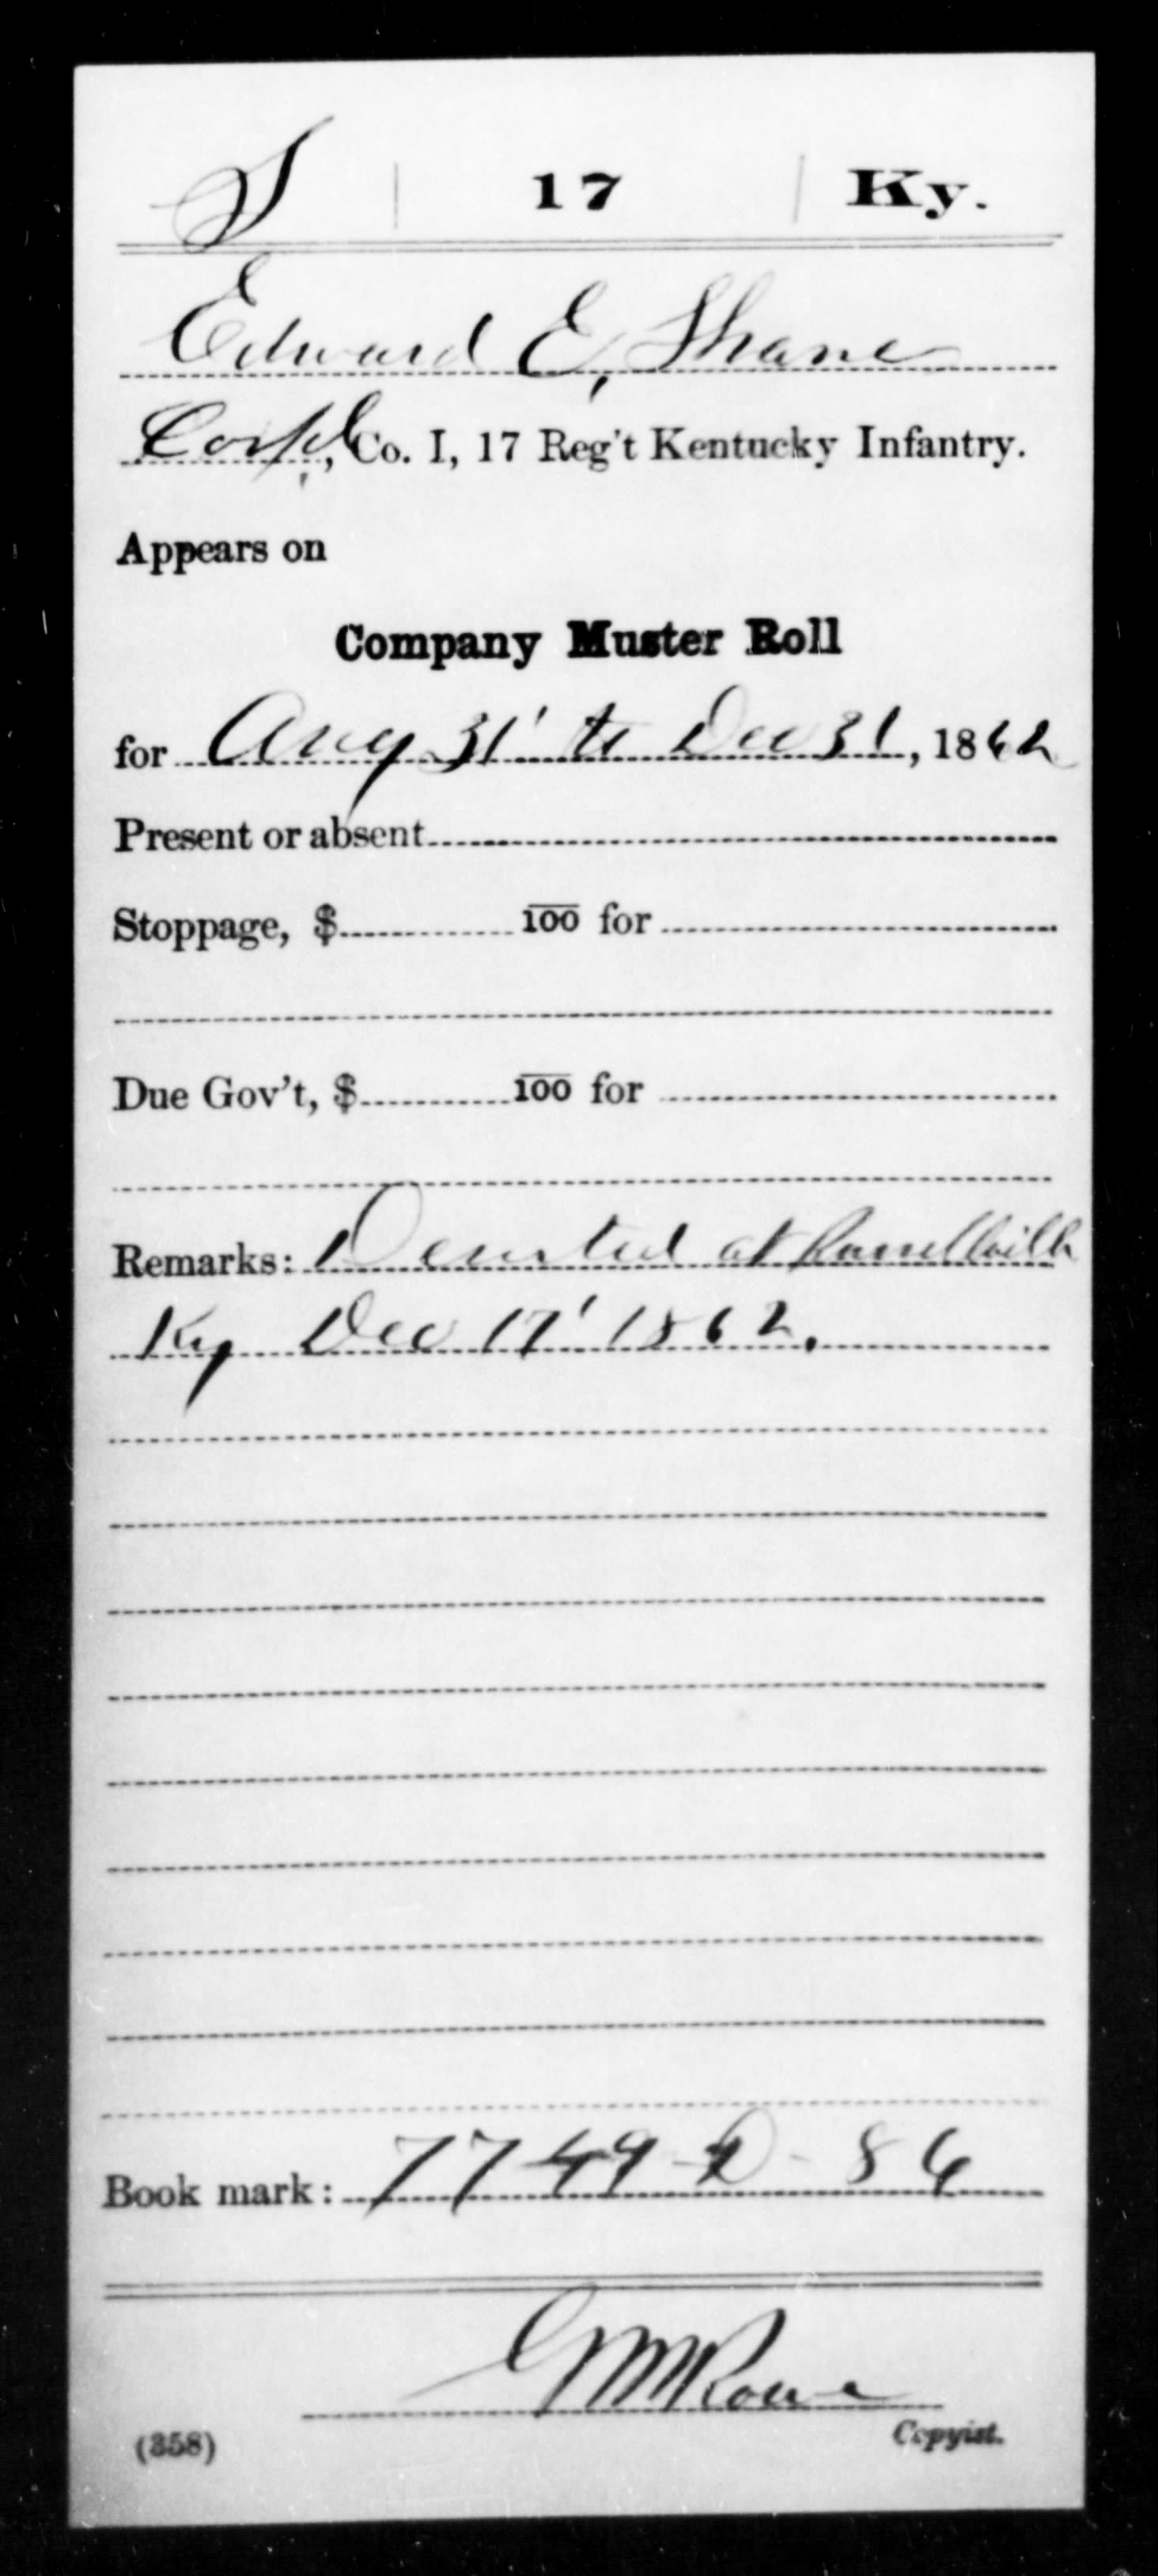 S | 17 | Ky.
Edward E, Shane
Corpl, Co. I, 17 Reg't Kentucky Infantry.
Appears on
Company Muster Roll
for Aug 31' to Dec 31, 1862
Present or absent
Stoppage, $ 100 for
Due Gov't, $ 100 for
Remarks: Deserted at Russellville
Ky Dec 17' 1862.
Book mark: 7749-D-86
GMRowe
Copyist.
(358)